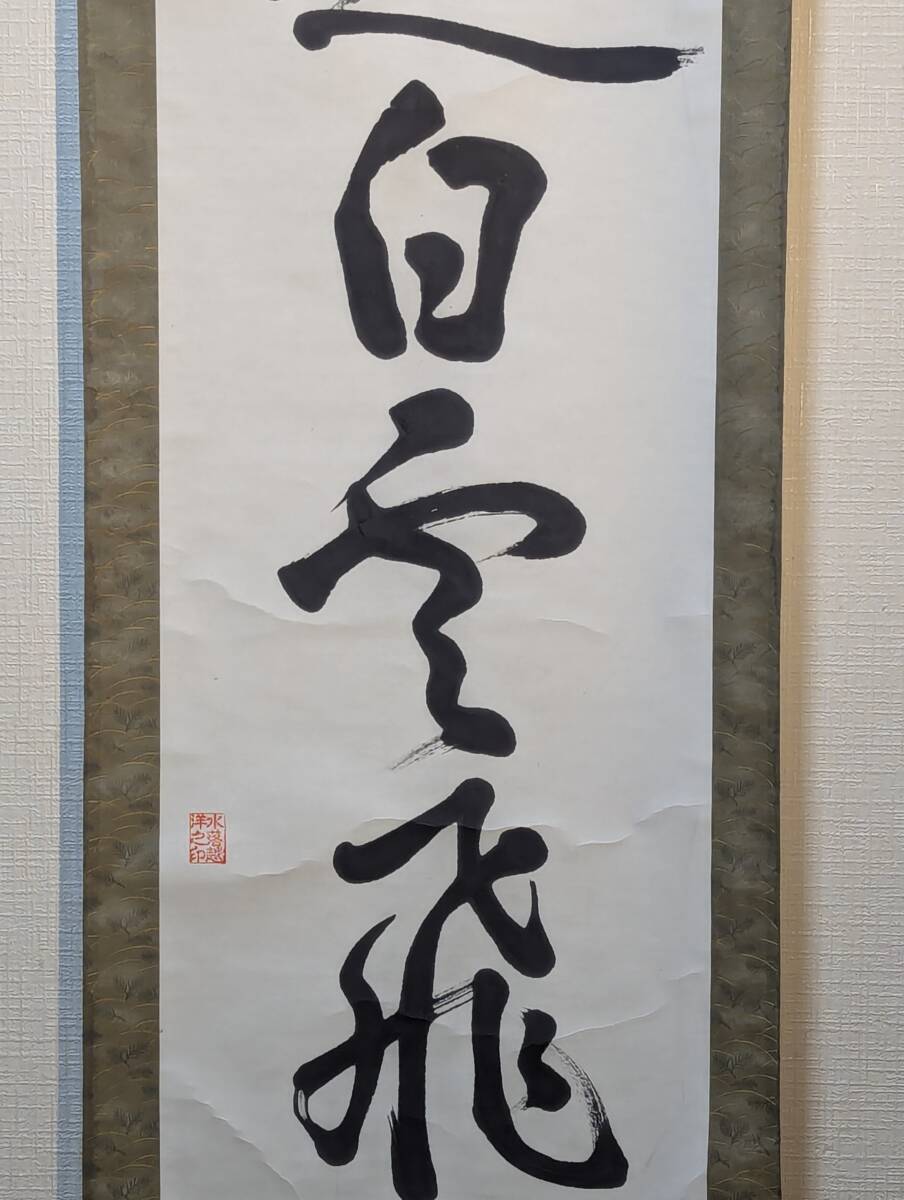 白雲飛
水落越
洋之印